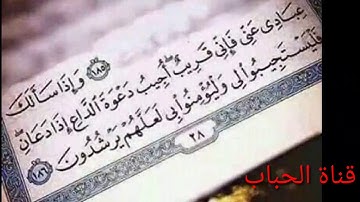 ١٨٥ وَإِذَا سَأَلَكَ
عِبَادِى عَنِّى فَإِنِّى قَرِيبٌ أُجِيبُ دَعْوَةَ ٱلدَّاعِ إِذَا دَعَانِ
فَلْيَسْتَجِيبُوا۟ لِى وَلْيُؤْمِنُوا۟ بِى لَعَلَّهُمْ يَرْشُدُونَ ١٨٦
٢٨
قناة الحباب